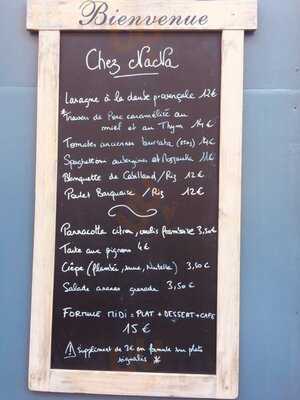 Bienvenue
Chez NaNa
Lasagne à la daube provençale 12€
*Travers de Porc caramélisé au
miel et au Thym 14€
Tomates anciennes burrata (250g) 14€
Spaghettoni aubergine et Mozzarella 11€
Blanquette de Cabillaud/Riz 12€
Poulet Basquaise/Riz 12€
Pannacotta citron, coulis framboise 3,50€
Tarte aux pignons 4€
Crêpe (flambée, sucre, Nutella) 3,50€
Salade ananas grenade 3,50€
FORMULE MIDI = PLAT + DESSERT + CAFE
15€
! Supplément de 3€ en formule sur plats
signalés *